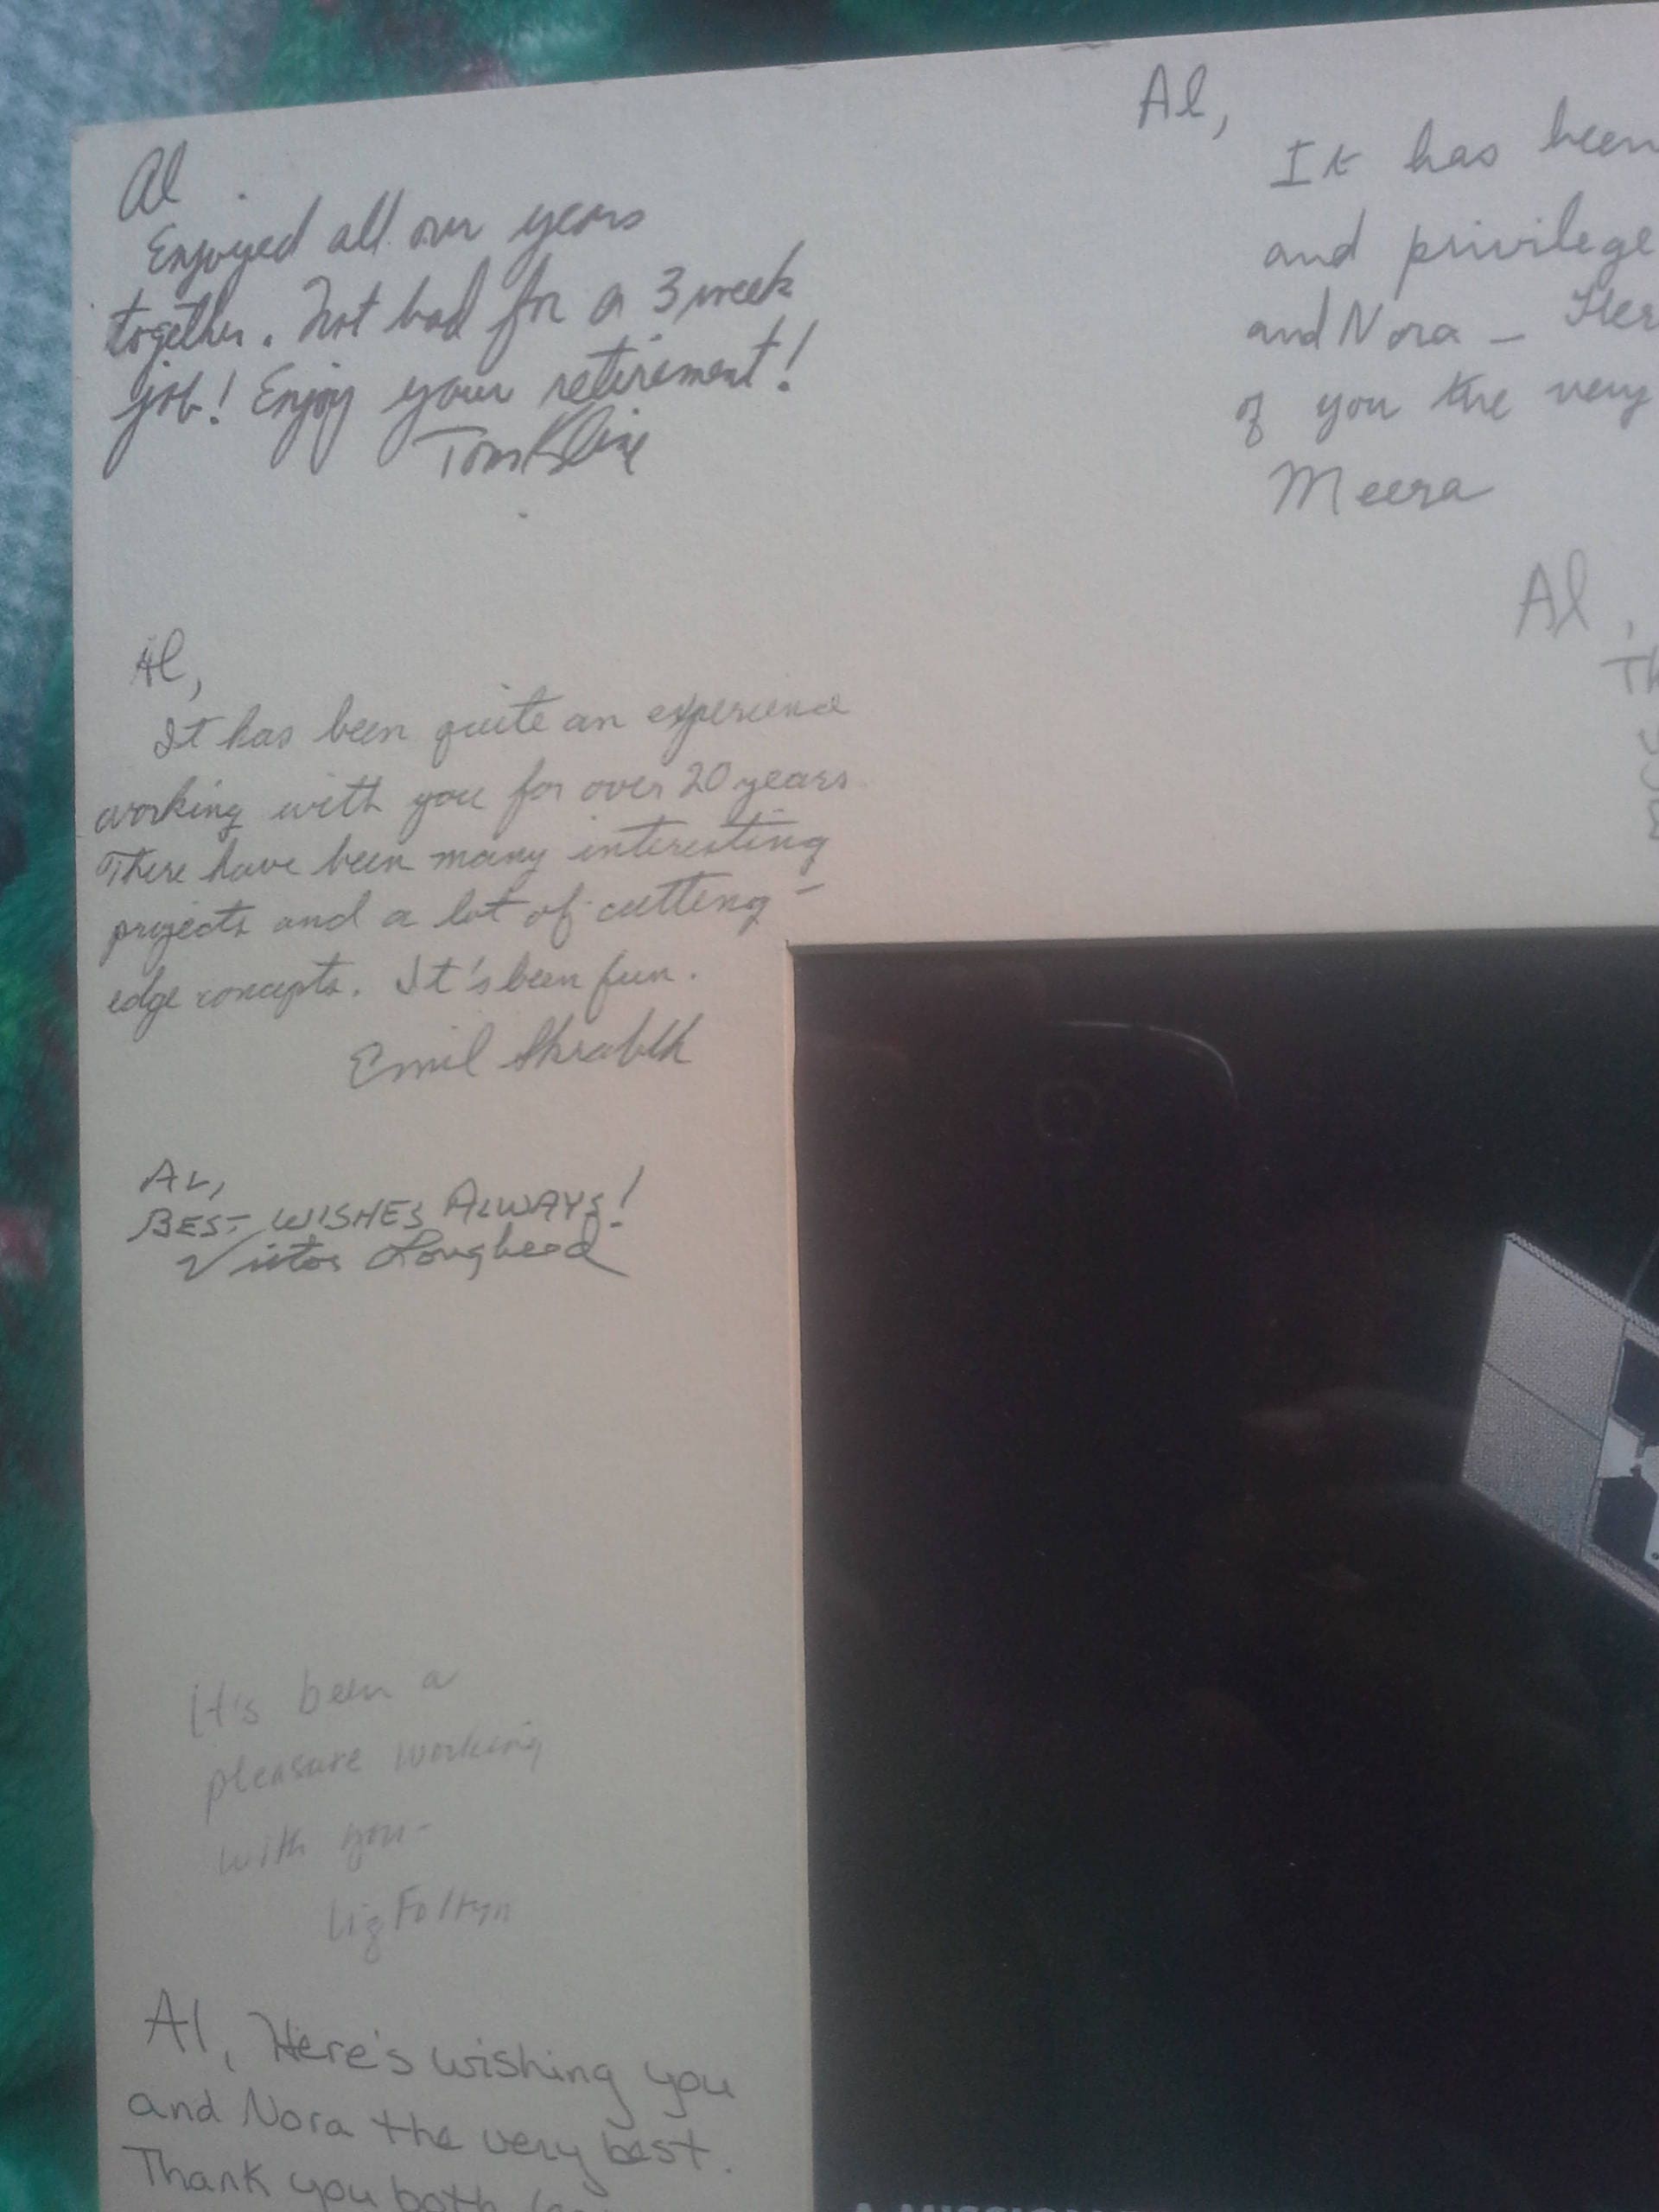 Al
Enjoyed all our years
together. Not bad for a 3 week
job! Enjoy your retirement!
Tom Kline
Al,
It has been quite an experience
working with you for over 20 years.
There have been many interesting
projects and a lot of cutting-
edge concepts. It's been fun.
Emil
AL,
BEST WISHES ALWAYS!
Victor Loughead
It's been a
pleasure working
with you-
Liz Foltyn
Al, Here's wishing you
and Nora the very best.
Thank you both
Al,
It has been
and privilege
and Nora -
of you the very
Meera
Al,
A MISSION